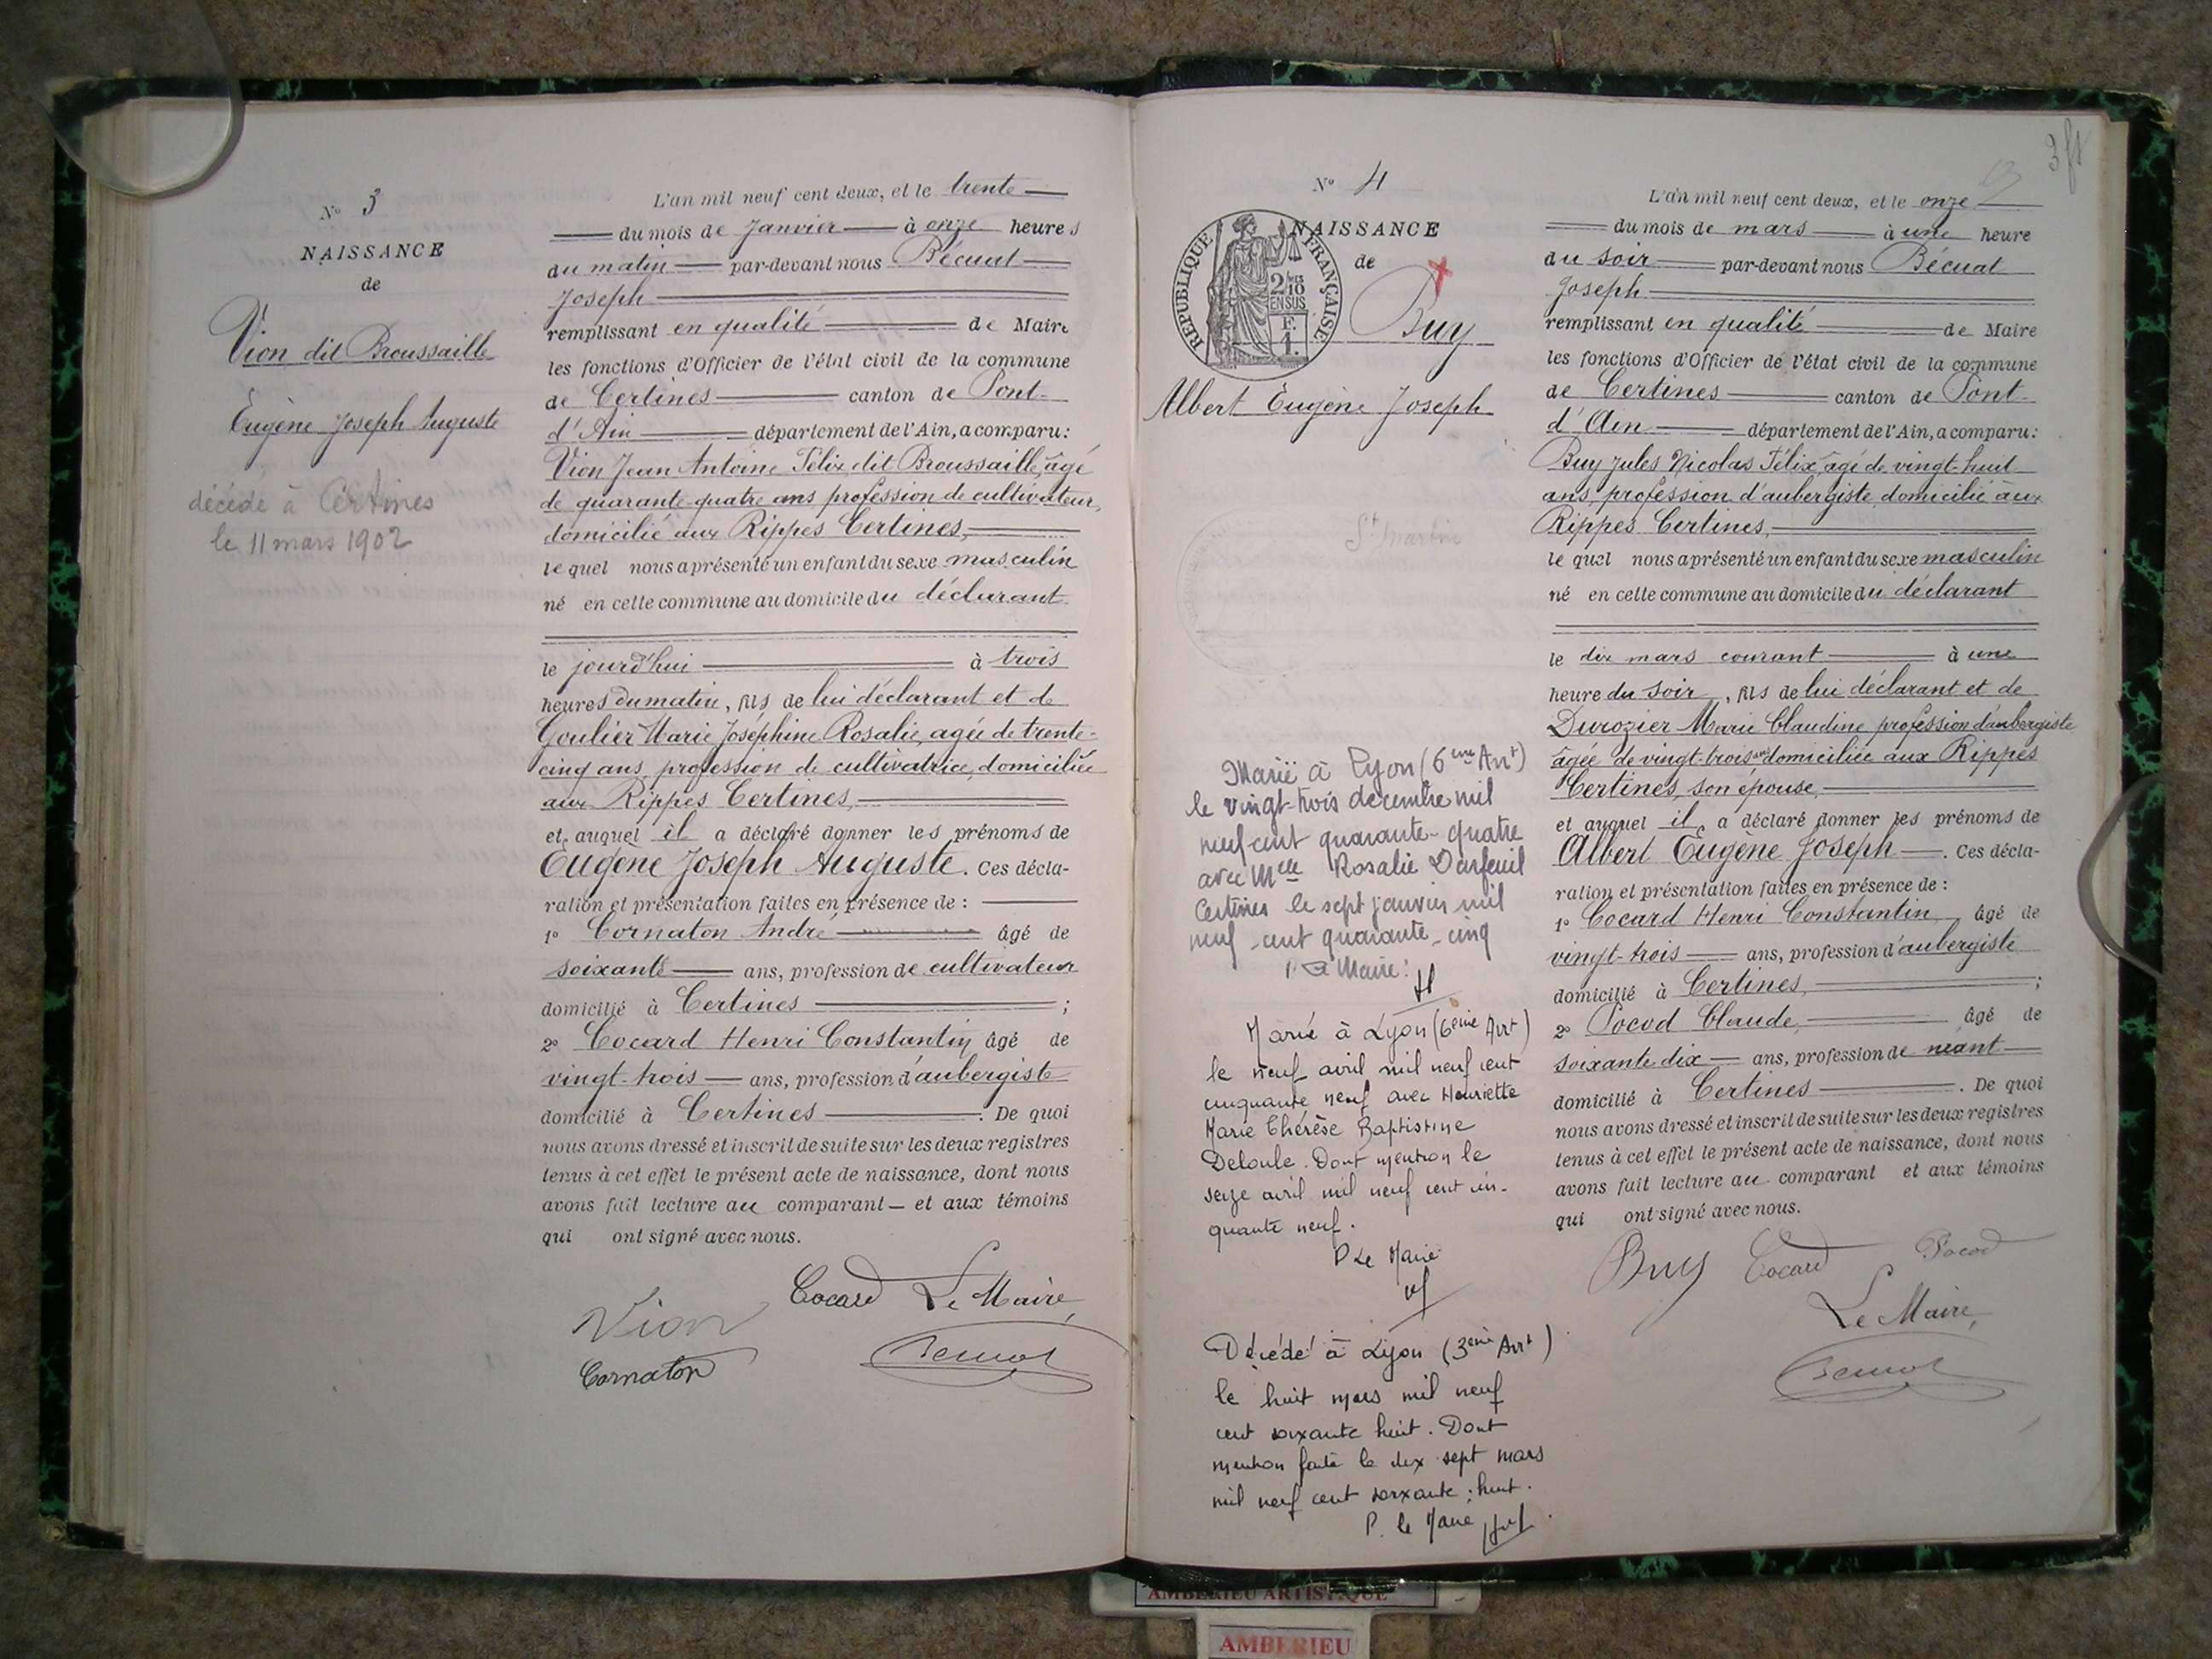 N° 3
NAISSANCE
de
Vion dit Broussaille
Eugène Joseph Auguste
décédé à Certines
le 11 mars 1902
L'an mil neuf cent deux, et le trente
du mois de Janvier à onze heures
du matin par-devant nous Bécuat
Joseph
remplissant en qualité de Maire
les fonctions d'Officier de l'état civil de la commune
de Certines canton de Pont-
d'Ain département de l'Ain, a comparu:
Vion Jean Antoine Félix dit Broussaille, âgé
de quarante-quatre ans profession de cultivateur,
domicilié aux Rippes Certines,
lequel nous a présenté un enfant du sexe masculin
né en cette commune au domicile du déclarant
le jourd'hui à trois
heures du matin, fils de lui déclarant et de
Goulier Marie Joséphine Rosalie, agée de trente-
cinq ans, profession de cultivatrice, domiciliée
aux Rippes Certines,
et auquel il a déclaré donner les prénoms de
Eugène Joseph Auguste. Ces décla-
ration et présentation faites en présence de :
1° Cornaton André âgé de
soixante ans, profession de cultivateur
domicilié à Certines ;
2° Cocard Henri Constantin âgé de
vingt-trois ans, profession d'aubergiste
domicilié à Certines. De quoi
nous avons dressé et inscrit de suite sur les deux registres
tenus à cet effet le présent acte de naissance, dont nous
avons fait lecture au comparant et aux témoins
qui ont signé avec nous.
Cocard Le Maire,
Vion
Cornaton
Bécuat
3
N° 4
NAISSANCE
de
RÉPUBLIQUE FRANÇAISE
2/10
EN SUS
F.
1.
Buy
Albert Eugène Joseph
St Martin
Marié à Lyon (6ème Arrt)
le vingt-trois décembre mil
neuf cent quarante-quatre
avec Melle Rosalie Darfeuil
Certines le sept janvier mil
neuf-cent quarante-cinq
Le Maire:
Marié à Lyon (6ème Arrt)
le neuf avril mil neuf cent
cinquante neuf avec Henriette
Marie Thérèse Baptistine
Deloule. Dont mention le
seize avril mil neuf cent cin-
quante neuf.
P Le Maire
Décédé à Lyon (3ème Arrt)
le huit mars mil neuf
cent soixante huit. Dont
mention faite le dix sept mars
mil neuf cent soixante huit.
P. le Maire
L'an mil neuf cent deux, et le onze
du mois de mars à une heure
du soir par-devant nous Bécuat
Joseph
remplissant en qualité de Maire
les fonctions d'Officier de l'état civil de la commune
de Certines canton de Pont-
d'Ain département de l'Ain, a comparu:
Buy Jules Nicolas Félix âgé de vingt-huit
ans, profession d'aubergiste, domicilié aux
Rippes Certines,
lequel nous a présenté un enfant du sexe masculin
né en cette commune au domicile du déclarant
le dix mars courant à une
heure du soir, fils de lui déclarant et de
Durozier Marie Claudine profession d'aubergiste
âgée de vingt-trois ans domiciliée aux Rippes
Certines, son épouse,
et auquel il a déclaré donner les prénoms de
Albert Eugène Joseph. Ces décla-
ration et présentation faites en présence de :
1° Cocard Henri Constantin, âgé de
vingt-trois ans, profession d'aubergiste
domicilié à Certines, ;
2° Pocod Claude, âgé de
soixante dix ans, profession de néant
domicilié à Certines. De quoi
nous avons dressé et inscrit de suite sur les deux registres
tenus à cet effet le présent acte de naissance, dont nous
avons fait lecture au comparant et aux témoins
qui ont signé avec nous.
Buy Cocard Pocod
Le Maire,
Bécuat
AMBERIEU ARTISTIQUE
AMBERIEU